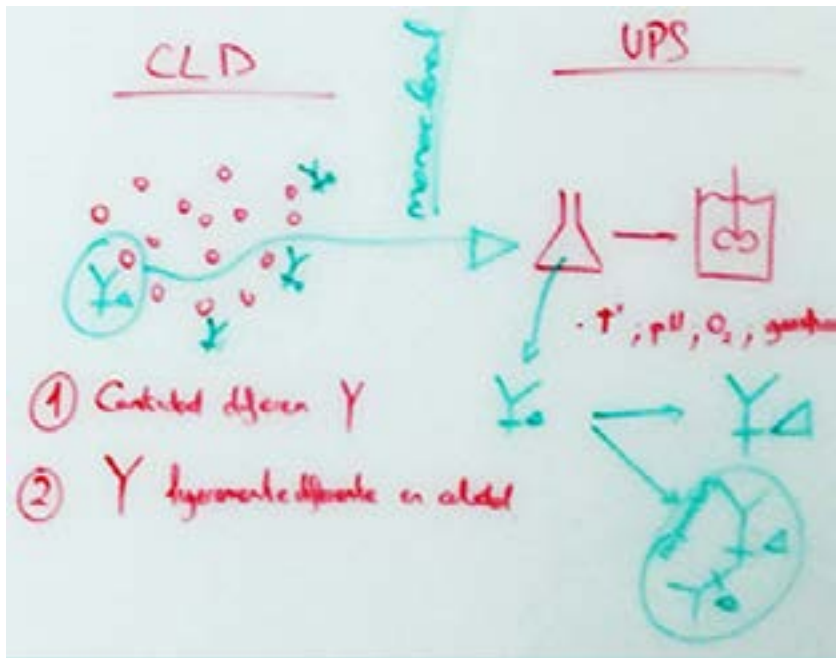 CLD
UPS
monoclonal
· Tª, pH, O₂, 
① Cantidad diferen Y
② Y ligeramente diferente en calidad